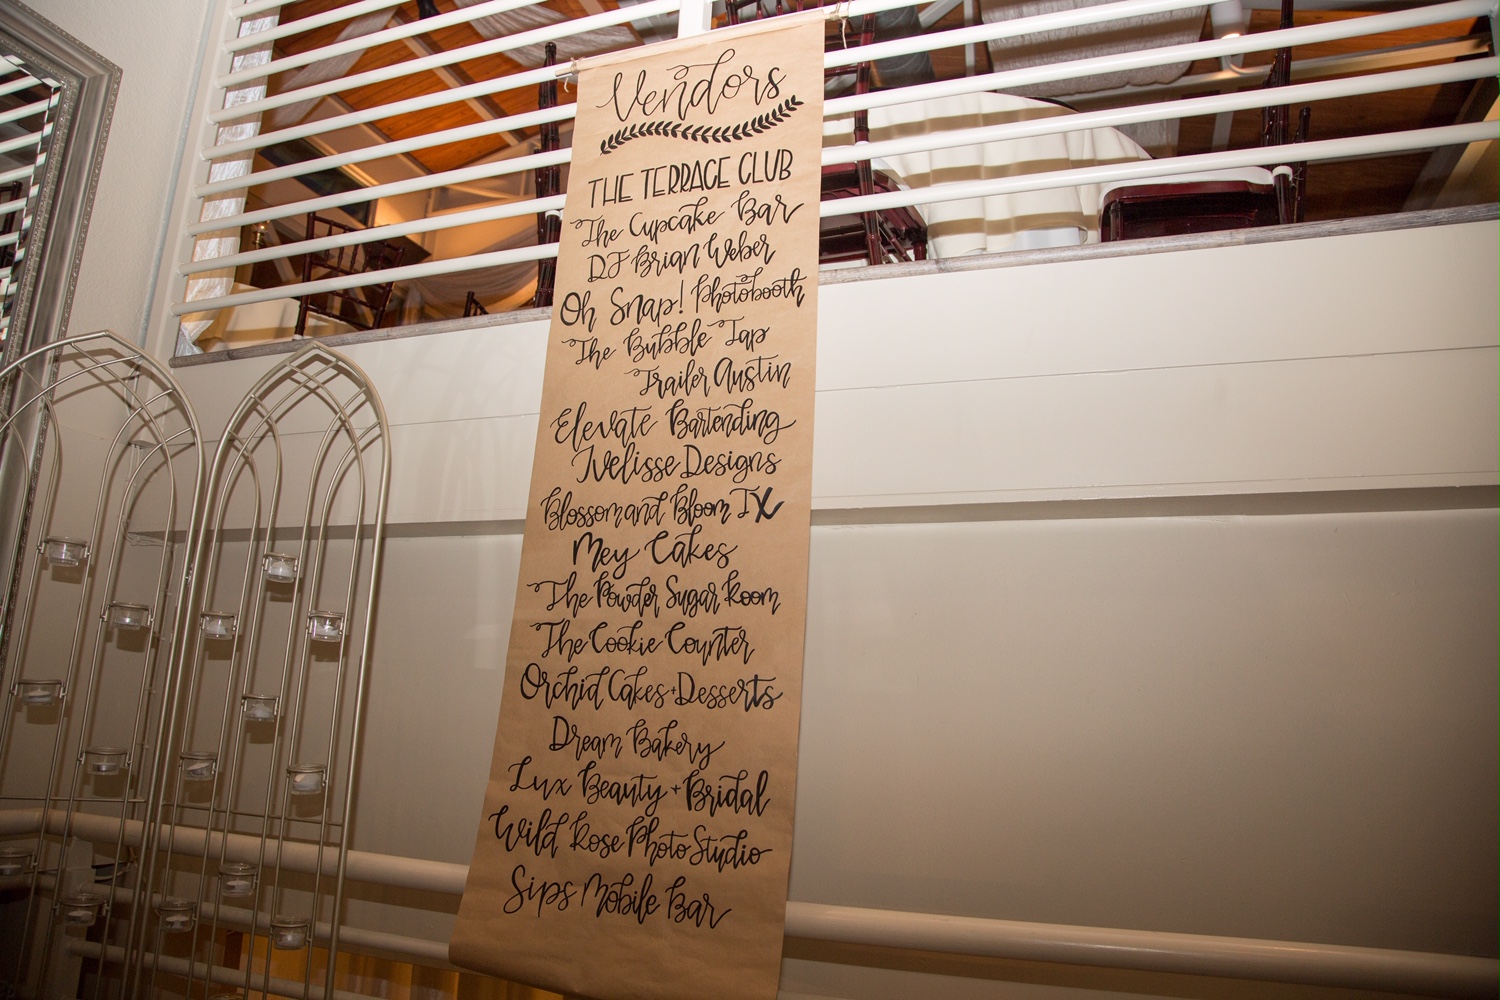 Vendors
THE TERRACE CLUB
The Cupcake Bar
DJ Brian Weber
Oh Snap! Photobooth
The Bubble Tap
Trailer Austin
Elevate Bartending
Ivelisse Designs
Blossom and Bloom TX
Mey Cakes
The Powder Sugar Room
The Cookie Counter
Orchid Cakes + Desserts
Dream Bakery
Lux Beauty + Bridal
Wild Rose Photo Studio
Sips Mobile Bar